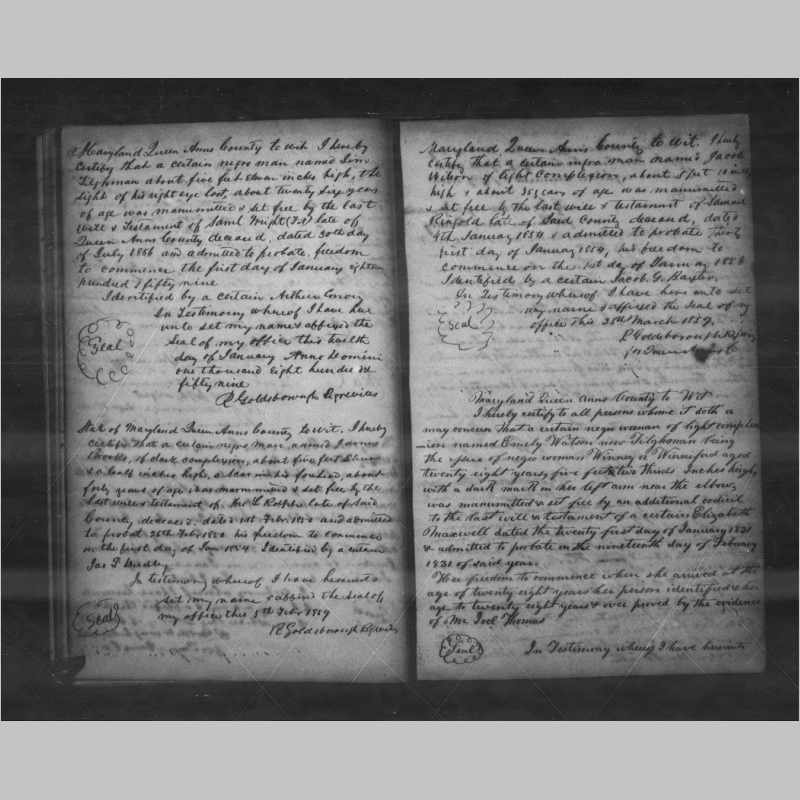 Maryland Queen Anns County to Wit I hereby
Certify that a certain negro man named Jim
Tilghman about five feet eleven inches high, the
sight of his right eye lost, about twenty six years
of age was manumitted & set free by the last
Will & Testament of Saml Wright late of
Queen Anns County deceased, dated 30th day
of July 1856 and admitted to probate. freedom
to commence the first day of January eighteen
hundred & fifty nine
Identified by a certain Arthur Emory
In Testimony whereof I have here
unto set my name & affixed the
Seal of my office this twelfth
day of January Anno Domini
one thousand eight hundred &
fifty nine
Seal
R Goldsborough Regrewills
State of Maryland Queen Anns County to wit. I hereby
certify that a certain negro man, named James
of dark complexion, about five feet
& a half inches high, a scar on his forehead, about
forty years of age, was manumitted & set free by the
last will & testament of late of said
County deceased, dated 1st Feby. 1850 and admitted
to probat 26th Feby 1850 his freedom to commence
on the first day of Jany 1854. Identified by a certain
Jas P. Dudley
In testimony whereof I have hereunto
set my name & affixed the Seal of
my office this 5th Feby 1859
Seal
R Goldsborough Regrewills
Maryland Queen Anns County to Wit. I hereby
Certify that a certain negro man named Jacob
Wilson of light Complexion, about 5 feet 10 inches
high & about 35 years of age was manumitted
& set free by the last will & testament of Samuel
Ringold late of Said County deceased, dated
4th January 1854 & admitted to probate Thirty
first day of January 1854, his freedom to
commence on the 1st day of January 1858
Identified by a certain Jacob G. Baxter
In Testimony whereof I have here unto set
my name & affixed the Seal of my
office this 25th March 1859.
Seal
R Goldsborough Regr
for Queen Anns Co
Maryland Queen Anns County to Wit
I hereby certify to all persons whome it doth or
may concern that a certain negro woman of light complex
ion named Emely Watson now Tilghman being
the issue of negro woman Winney or Winniford aged
twenty eight years, five feet two thirds Inches high,
with a dark mark on her left arm near the elbow,
was manumitted & set free by an additional codicil
to the last will & testament of a certain Elizabeth
Maxwell dated the twenty first day of January 1831
& admitted to probate on the nineteenth day of February
1831 of said year.
Her freedom to commence when she arrived at the
age of twenty eight years her person identified & her
age to twenty eight years & over proved by the evidence
of Mr Joel Thomas
Seal
In Testimony whereof I have hereunto